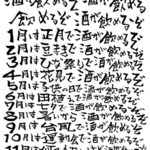 酒が飲めるぞ
飲めるぞ酒が飲めるぞ
1月は正月で酒が飲めるぞ
2月は豆まきで酒が飲めるぞ
3月はひな祭りで酒が飲めるぞ
4月は花見で酒が飲めるぞ
5月は子供の日で酒が飲めるぞ
6月は田植えで酒が飲めるぞ
7月は七夕で酒が飲めるぞ
8月は暑いから酒が飲めるぞ
9月は台風で酒が飲めるぞ
10月は運動会で酒が飲めるぞ
11月は